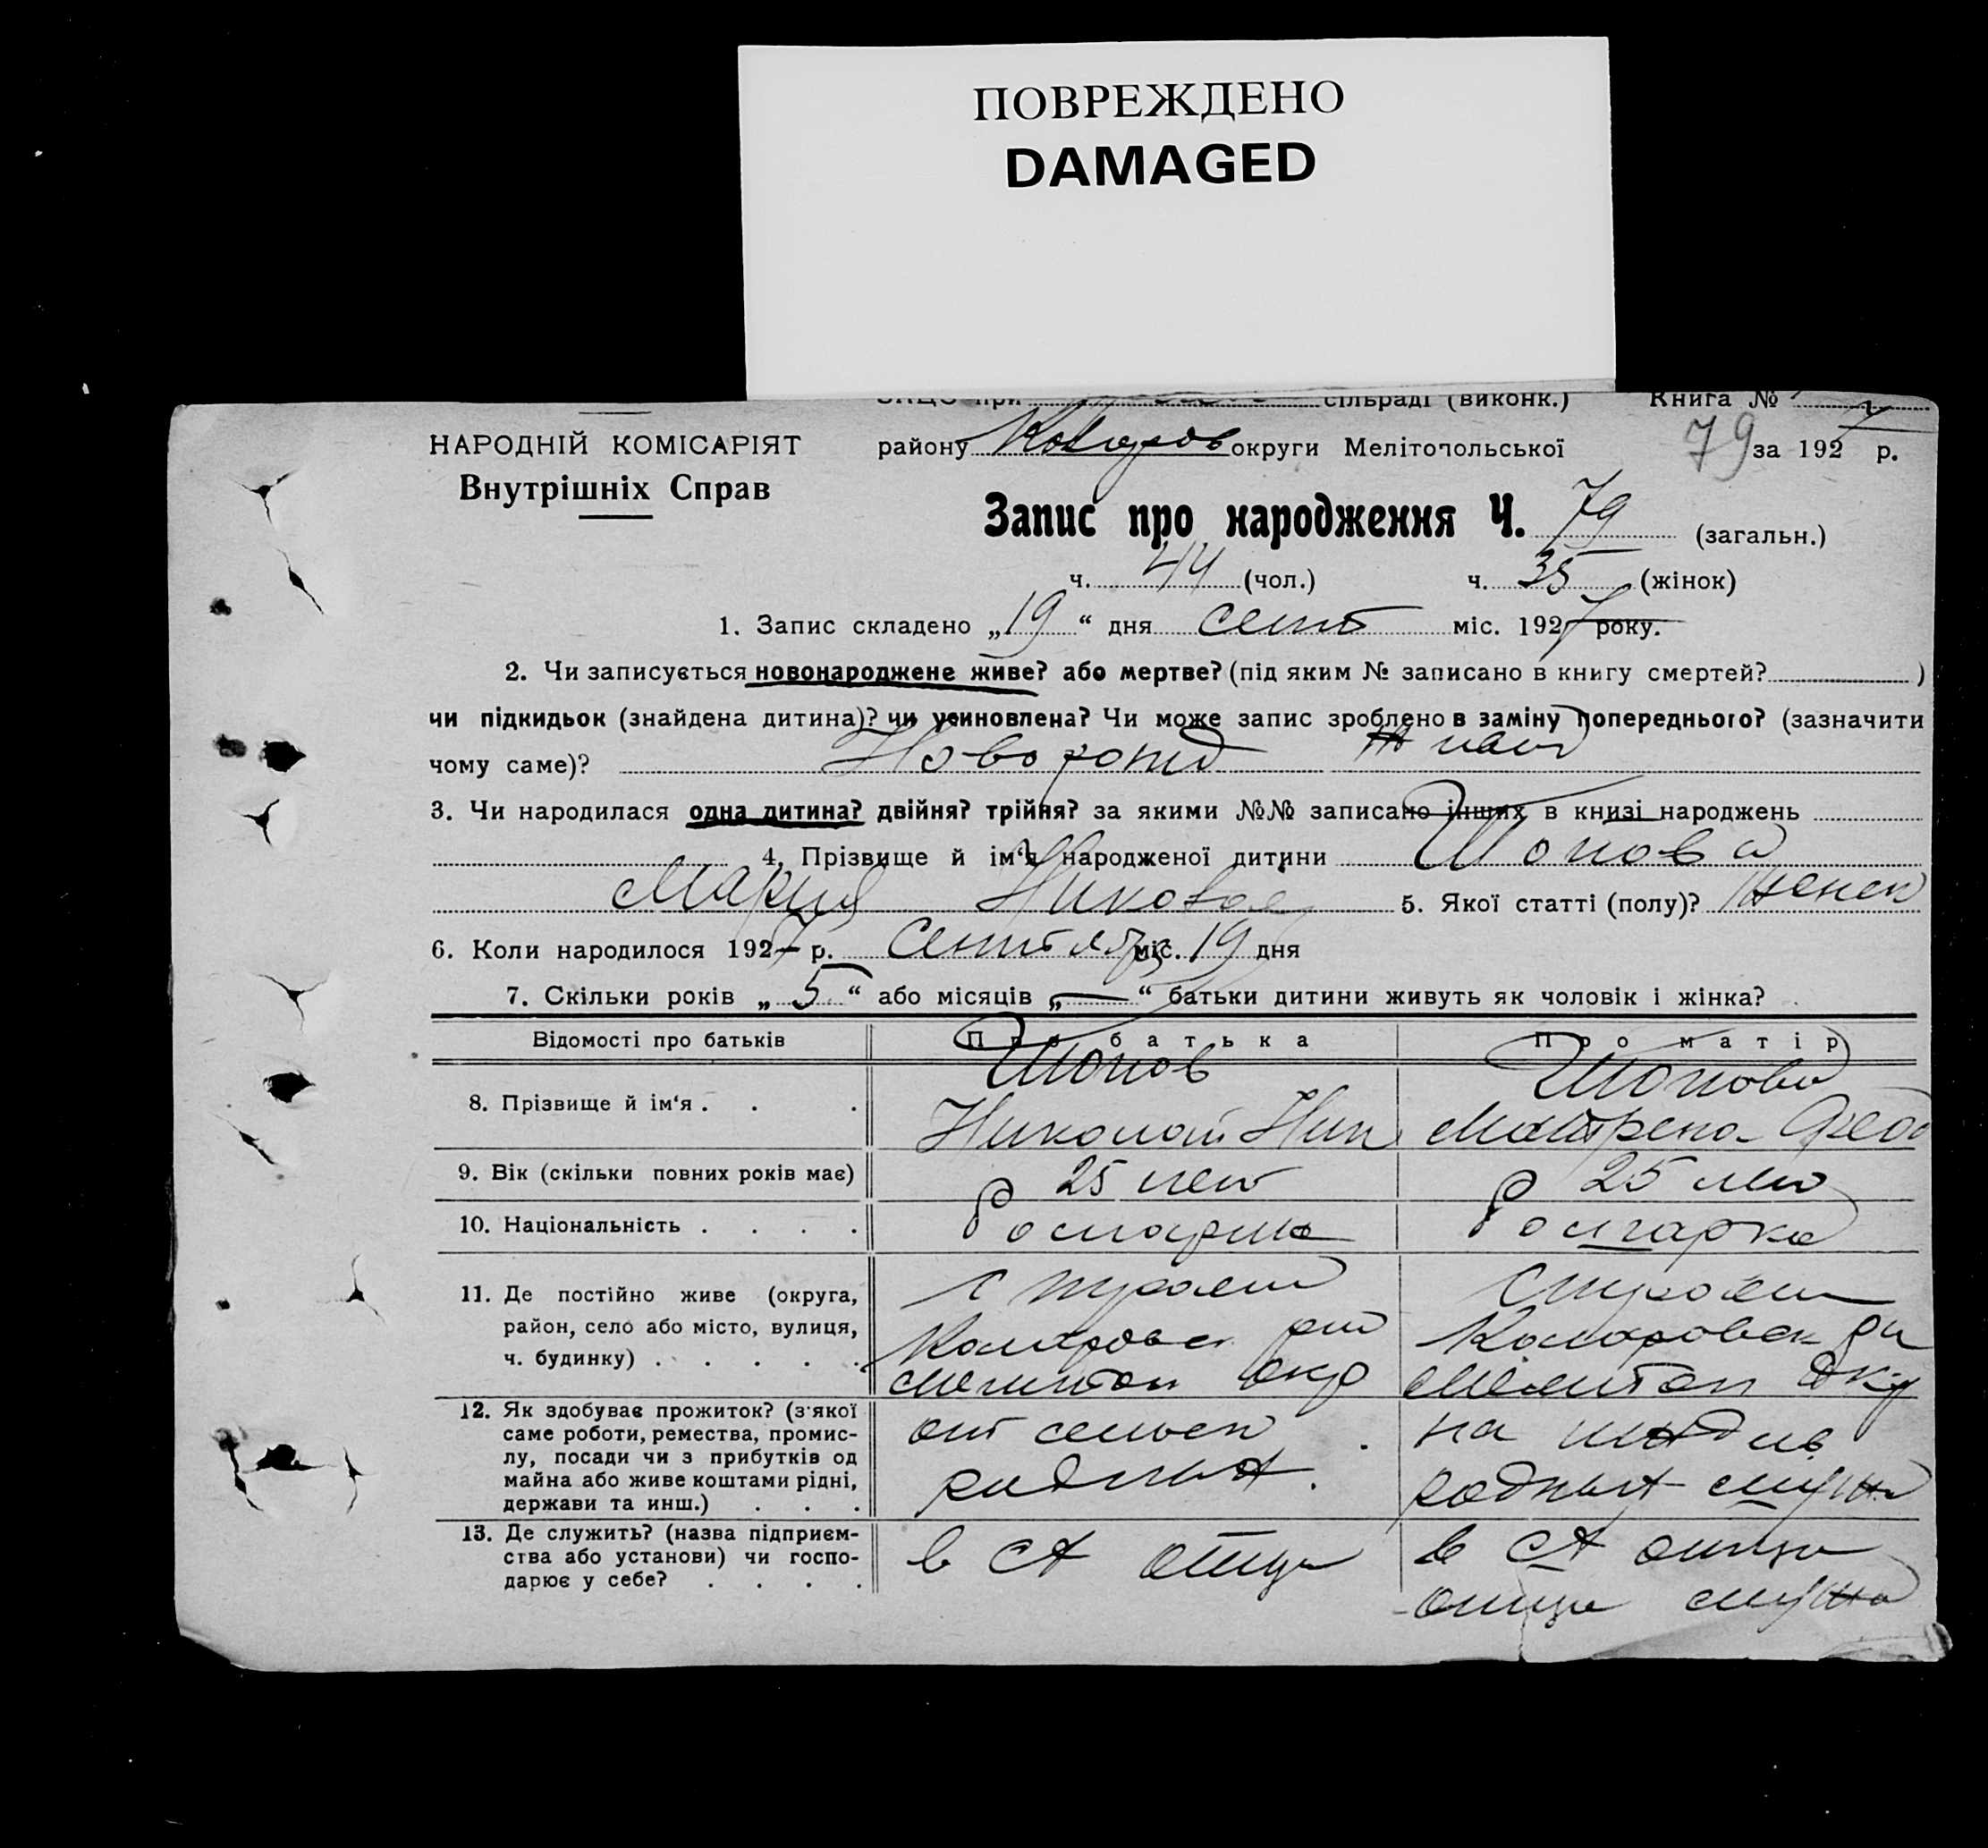 ПОВРЕЖДЕНО
DAMAGED
ЗАЦС при сільраді (виконк.) Книга №
НАРОДНІЙ КОМІСАРІЯТ району округи Мелітопольської 79 за 1927 р.
Внутрішніх Справ
Запис про народження Ч. 79 (загальн.)
ч. 44 (чол.) ч. 35 (жінок)
1. Запис складено „19“ дня сент міс. 1927 року.
2. Чи записується новонароджене живе? або мертве? (під яким № записано в книгу смертей? )
чи підкидьок (знайдена дитина)? чи усиновлена? Чи може запис зроблено в заміну попереднього? (зазначити
чому саме)? Новорожд
3. Чи народилася одна дитина? двійня? трійня? за якими №№ записано інших в книзі народжень
4. Прізвище й ім‘я народженої дитини Шопова
Мария Никола 5. Якої статті (полу)? женск
6. Коли народилося 1927 р. Сентябр міс. 19 дня
7. Скільки років „5“ або місяців „—“ батьки дитини живуть як чоловік і жінка?
Відомості про батьків Про батька Про матір
8. Прізвище й ім‘я . . . Шопов Николай Ник Шопова Матрена Фео
9. Вік (скільки повних років має) 25 лет 25 лет
10. Національність . . . . болгарин болгарка
11. Де постійно живе (округа,
район, село або місто, вулиця,
ч. будинку) . . . . . Мелитоп окр Мелитоп окр
12. Як здобуває прожиток? (з‘якої
саме роботи, ремества, промис-
лу, посади чи з прибутків од
майна або живе коштами рідні,
держави та инш.) . . . родных родных мужа
13. Де служить? (назва підприєм-
ства або установи) чи госпо-
дарює у себе? . . . . в сх отца в сх отца
отца мужа